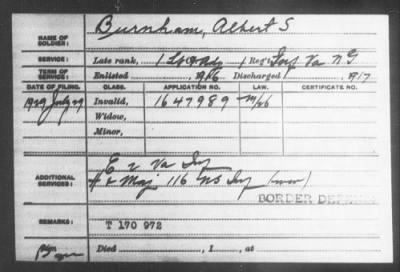 NAME OF SOLDIER: Burnham, Albert S
SERVICE: Late rank, 1 Lt & Adj 1 Reg't Inf Va N G
TERM OF SERVICE: Enlisted 1916 Discharged 1917
DATE OF FILING. CLASS. APPLICATION NO. LAW. CERTIFICATE NO.
1929 July 29 Invalid, 1647989
Widow,
Minor,
ADDITIONAL SERVICES: E 2 Va Inf
& Maj 116 US Inf (WW)
BORDER
REMARKS: T 170 972
Died , 1 , at